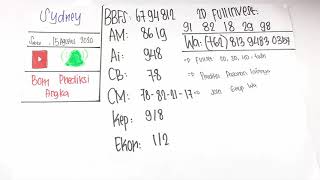 Sydney
15 Agustus 2020
Bom Prediksi
Angka
BBFS: 6794812
AM: 8619
Ai: 948
CB: 78
CM: 78-82-21-17
Kep: 9/8
Ekor: 1/2
2D Fullinvest:
91 82 18 29 98
Wa: (+62) 813 9483 0367
=> Prediksi Pasaran lainnya
=> Join Grup Wa